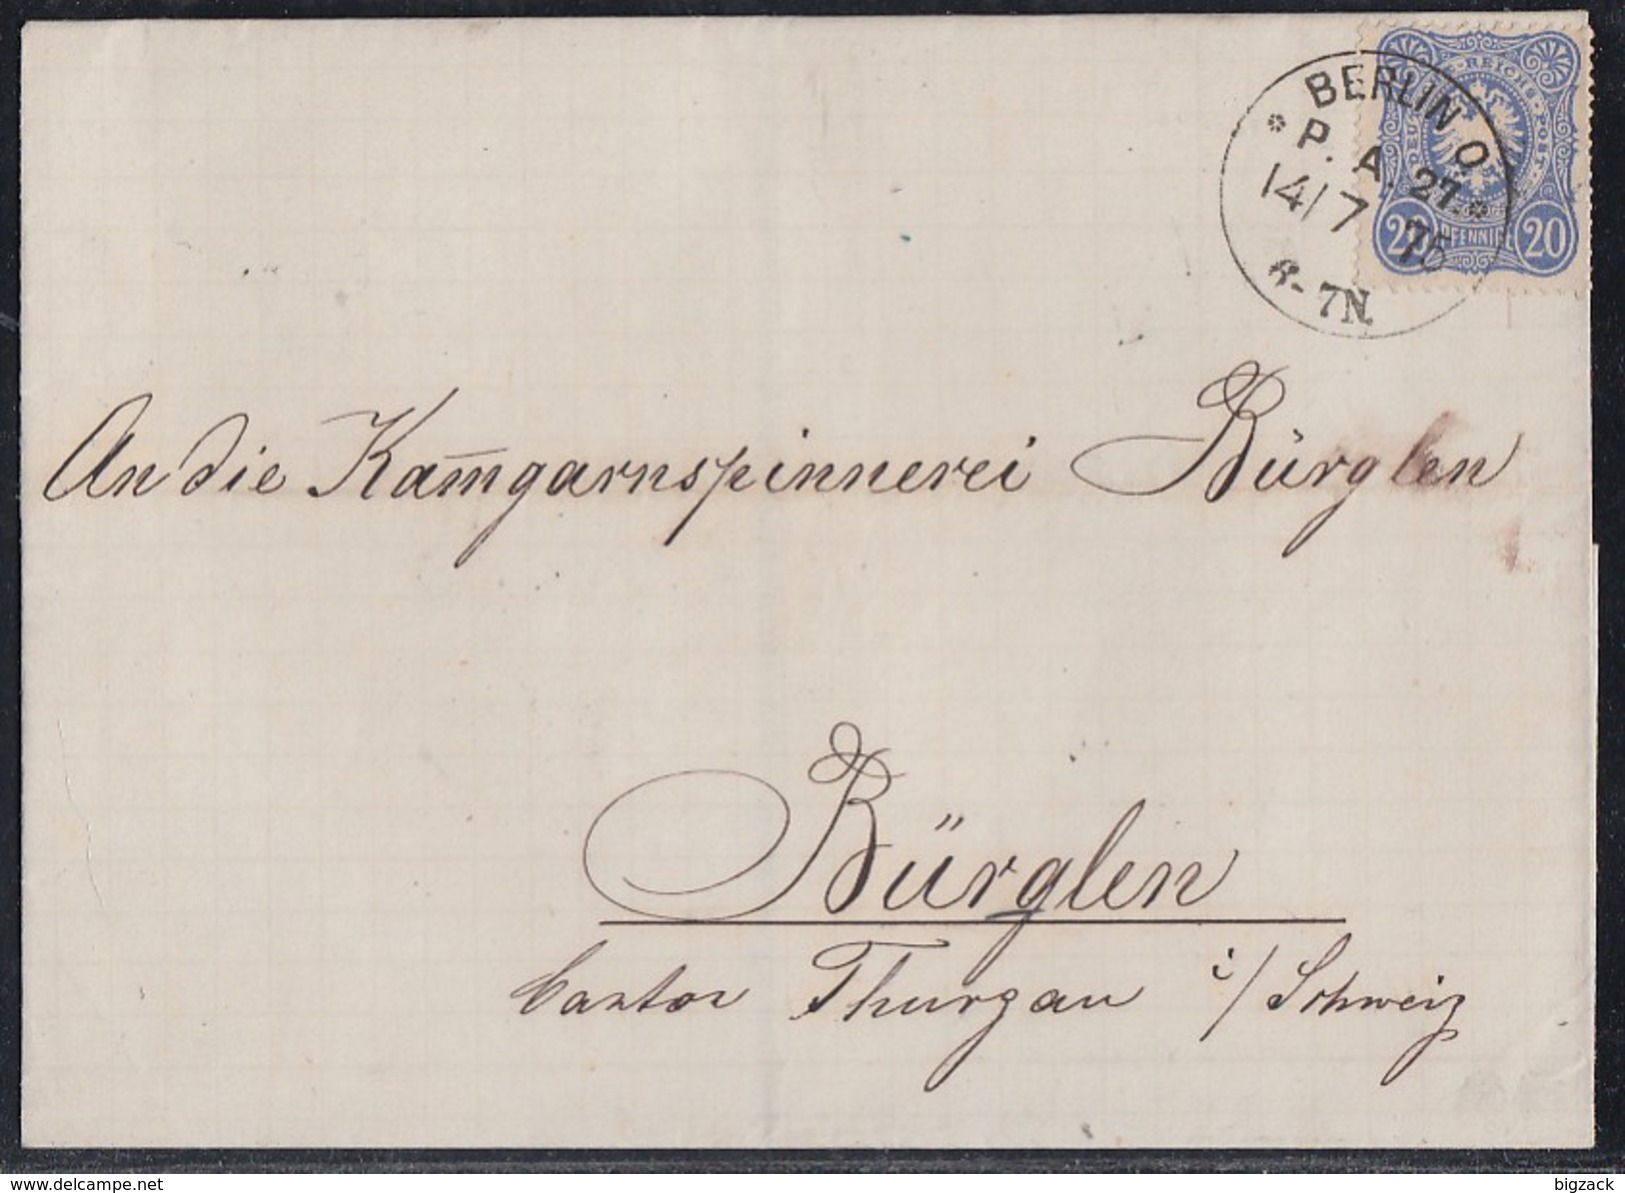 BERLIN O.
* P. A. 27. *
14/7 75
6-7N.
DEUTSCHE REICHS-POST
20 PFENNIGE 20
An die Kam̅garnspinnerei Bürglen
Bürglen
Canton Thurgau i/Schweiz
delcampe.net
bigzack